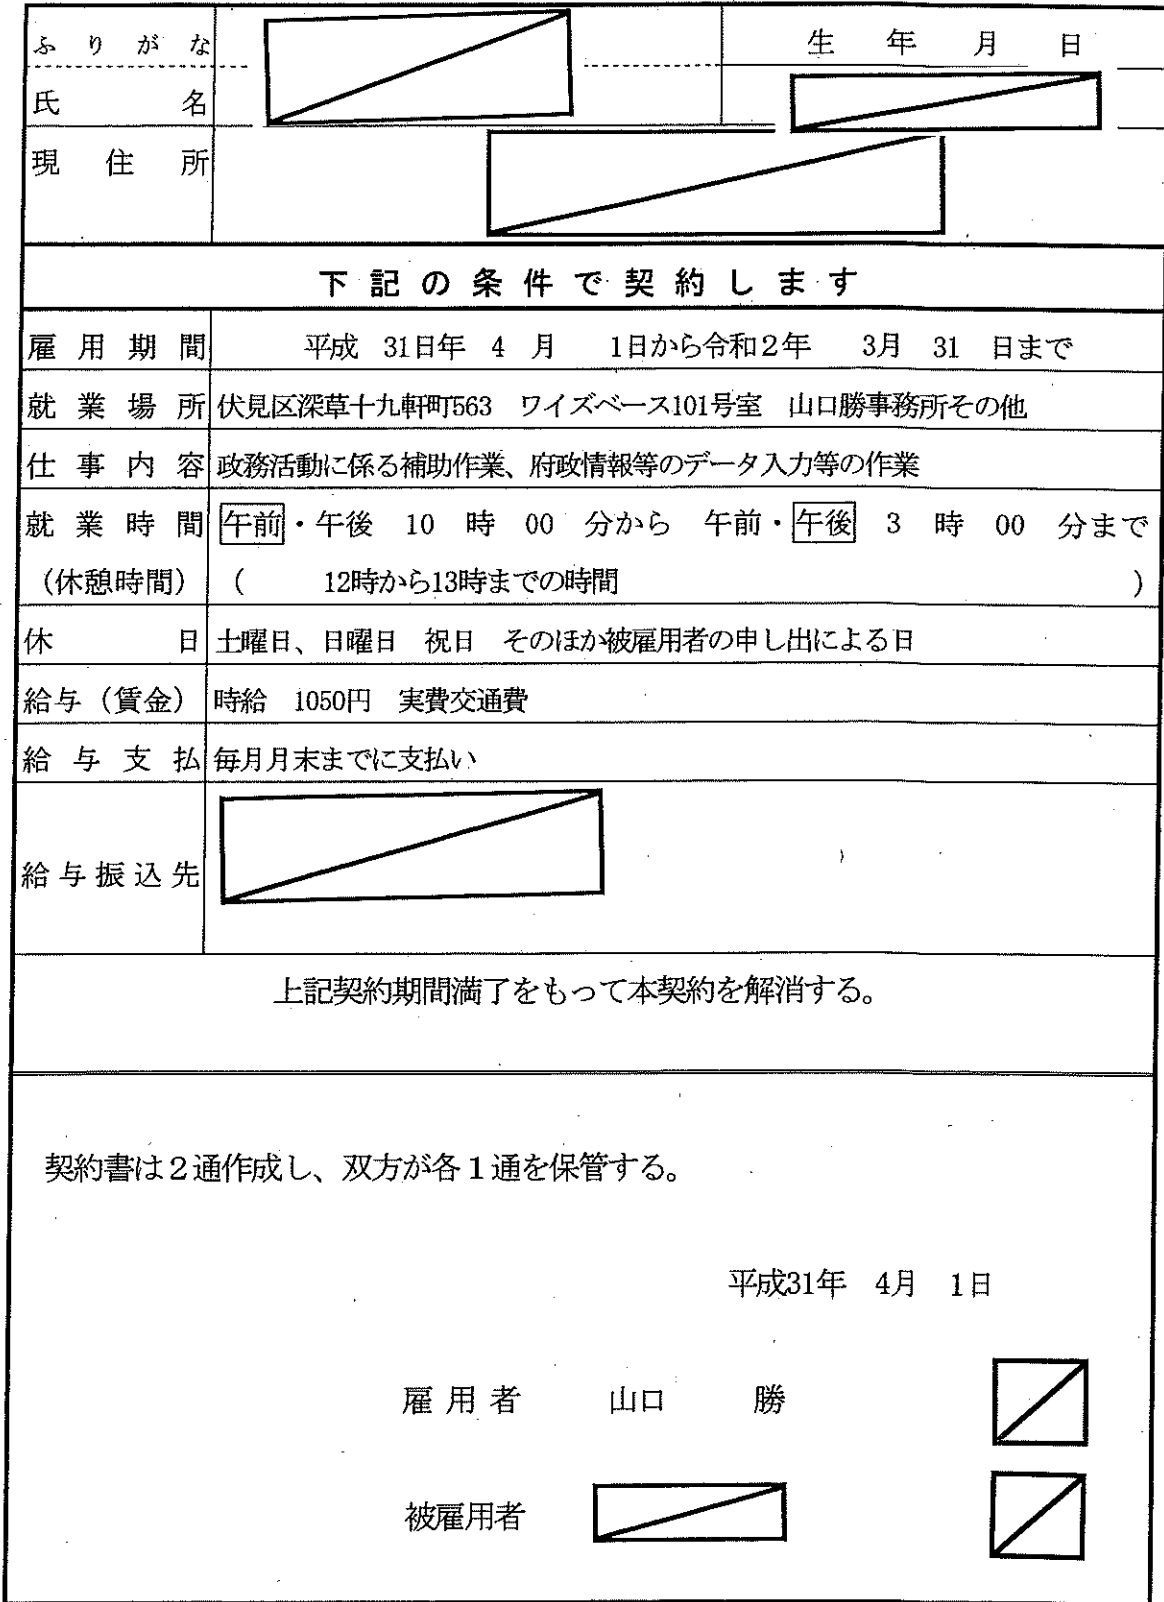 ふりがな
生年月日
氏名
現住所
下記の条件で契約します
雇用期間 平成 31日年 4 月 1日から令和2年 3月 31 日まで
就業場所 伏見区深草十九軒町563 ワイズベース101号室 山口勝事務所その他
仕事内容 政務活動に係る補助作業、府政情報等のデータ入力等の作業
就業時間 午前・午後 10 時 00 分から 午前・午後 3 時 00 分まで
(休憩時間) ( 12時から13時までの時間 )
休日 土曜日、日曜日 祝日 そのほか被雇用者の申し出による日
給与(賃金) 時給 1050円 実費交通費
給与支払 毎月月末までに支払い
給与振込先
上記契約期間満了をもって本契約を解消する。
契約書は2通作成し、双方が各1通を保管する。
平成31年 4月 1日
雇用者 山口 勝
被雇用者